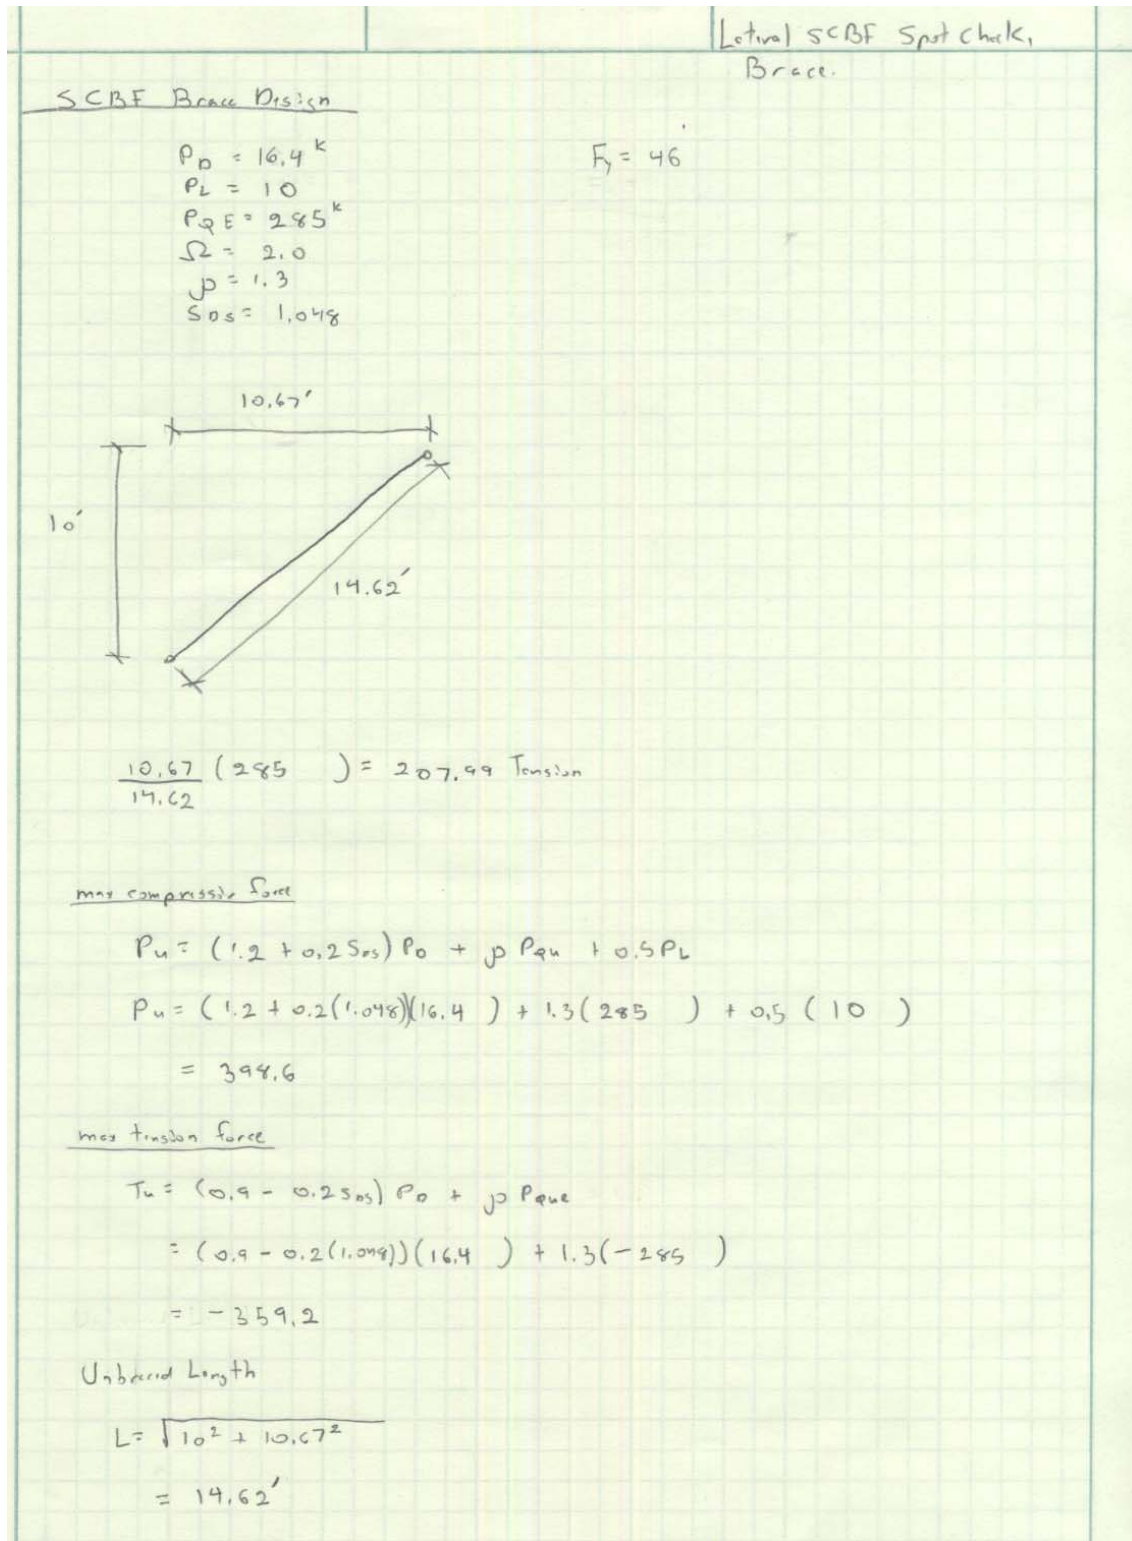 Lateral SCBF Spot Check,
Brace.
SCBF Brace Design
P_D = 16.4 k
F_y = 46
P_L = 10
P_QE = 285 k
Ω = 2.0
ρ = 1.3
S_DS = 1.048
10.67'
10'
14.62'
10.67/14.62 (285 ) = 207.99 Tension
max compressive force
P_u = (1.2 + 0.2 S_DS) P_D + ρ P_Qu + 0.5 P_L
P_u = (1.2 + 0.2(1.048))(16.4 ) + 1.3(285 ) + 0.5 (10 )
= 398.6
max tension force
T_u = (0.9 - 0.2 S_DS) P_D + ρ P_Que
= (0.9 - 0.2(1.048))(16.4 ) + 1.3(-285 )
= -359.2
Unbraced Length
L = √10² + 10.67²
= 14.62'